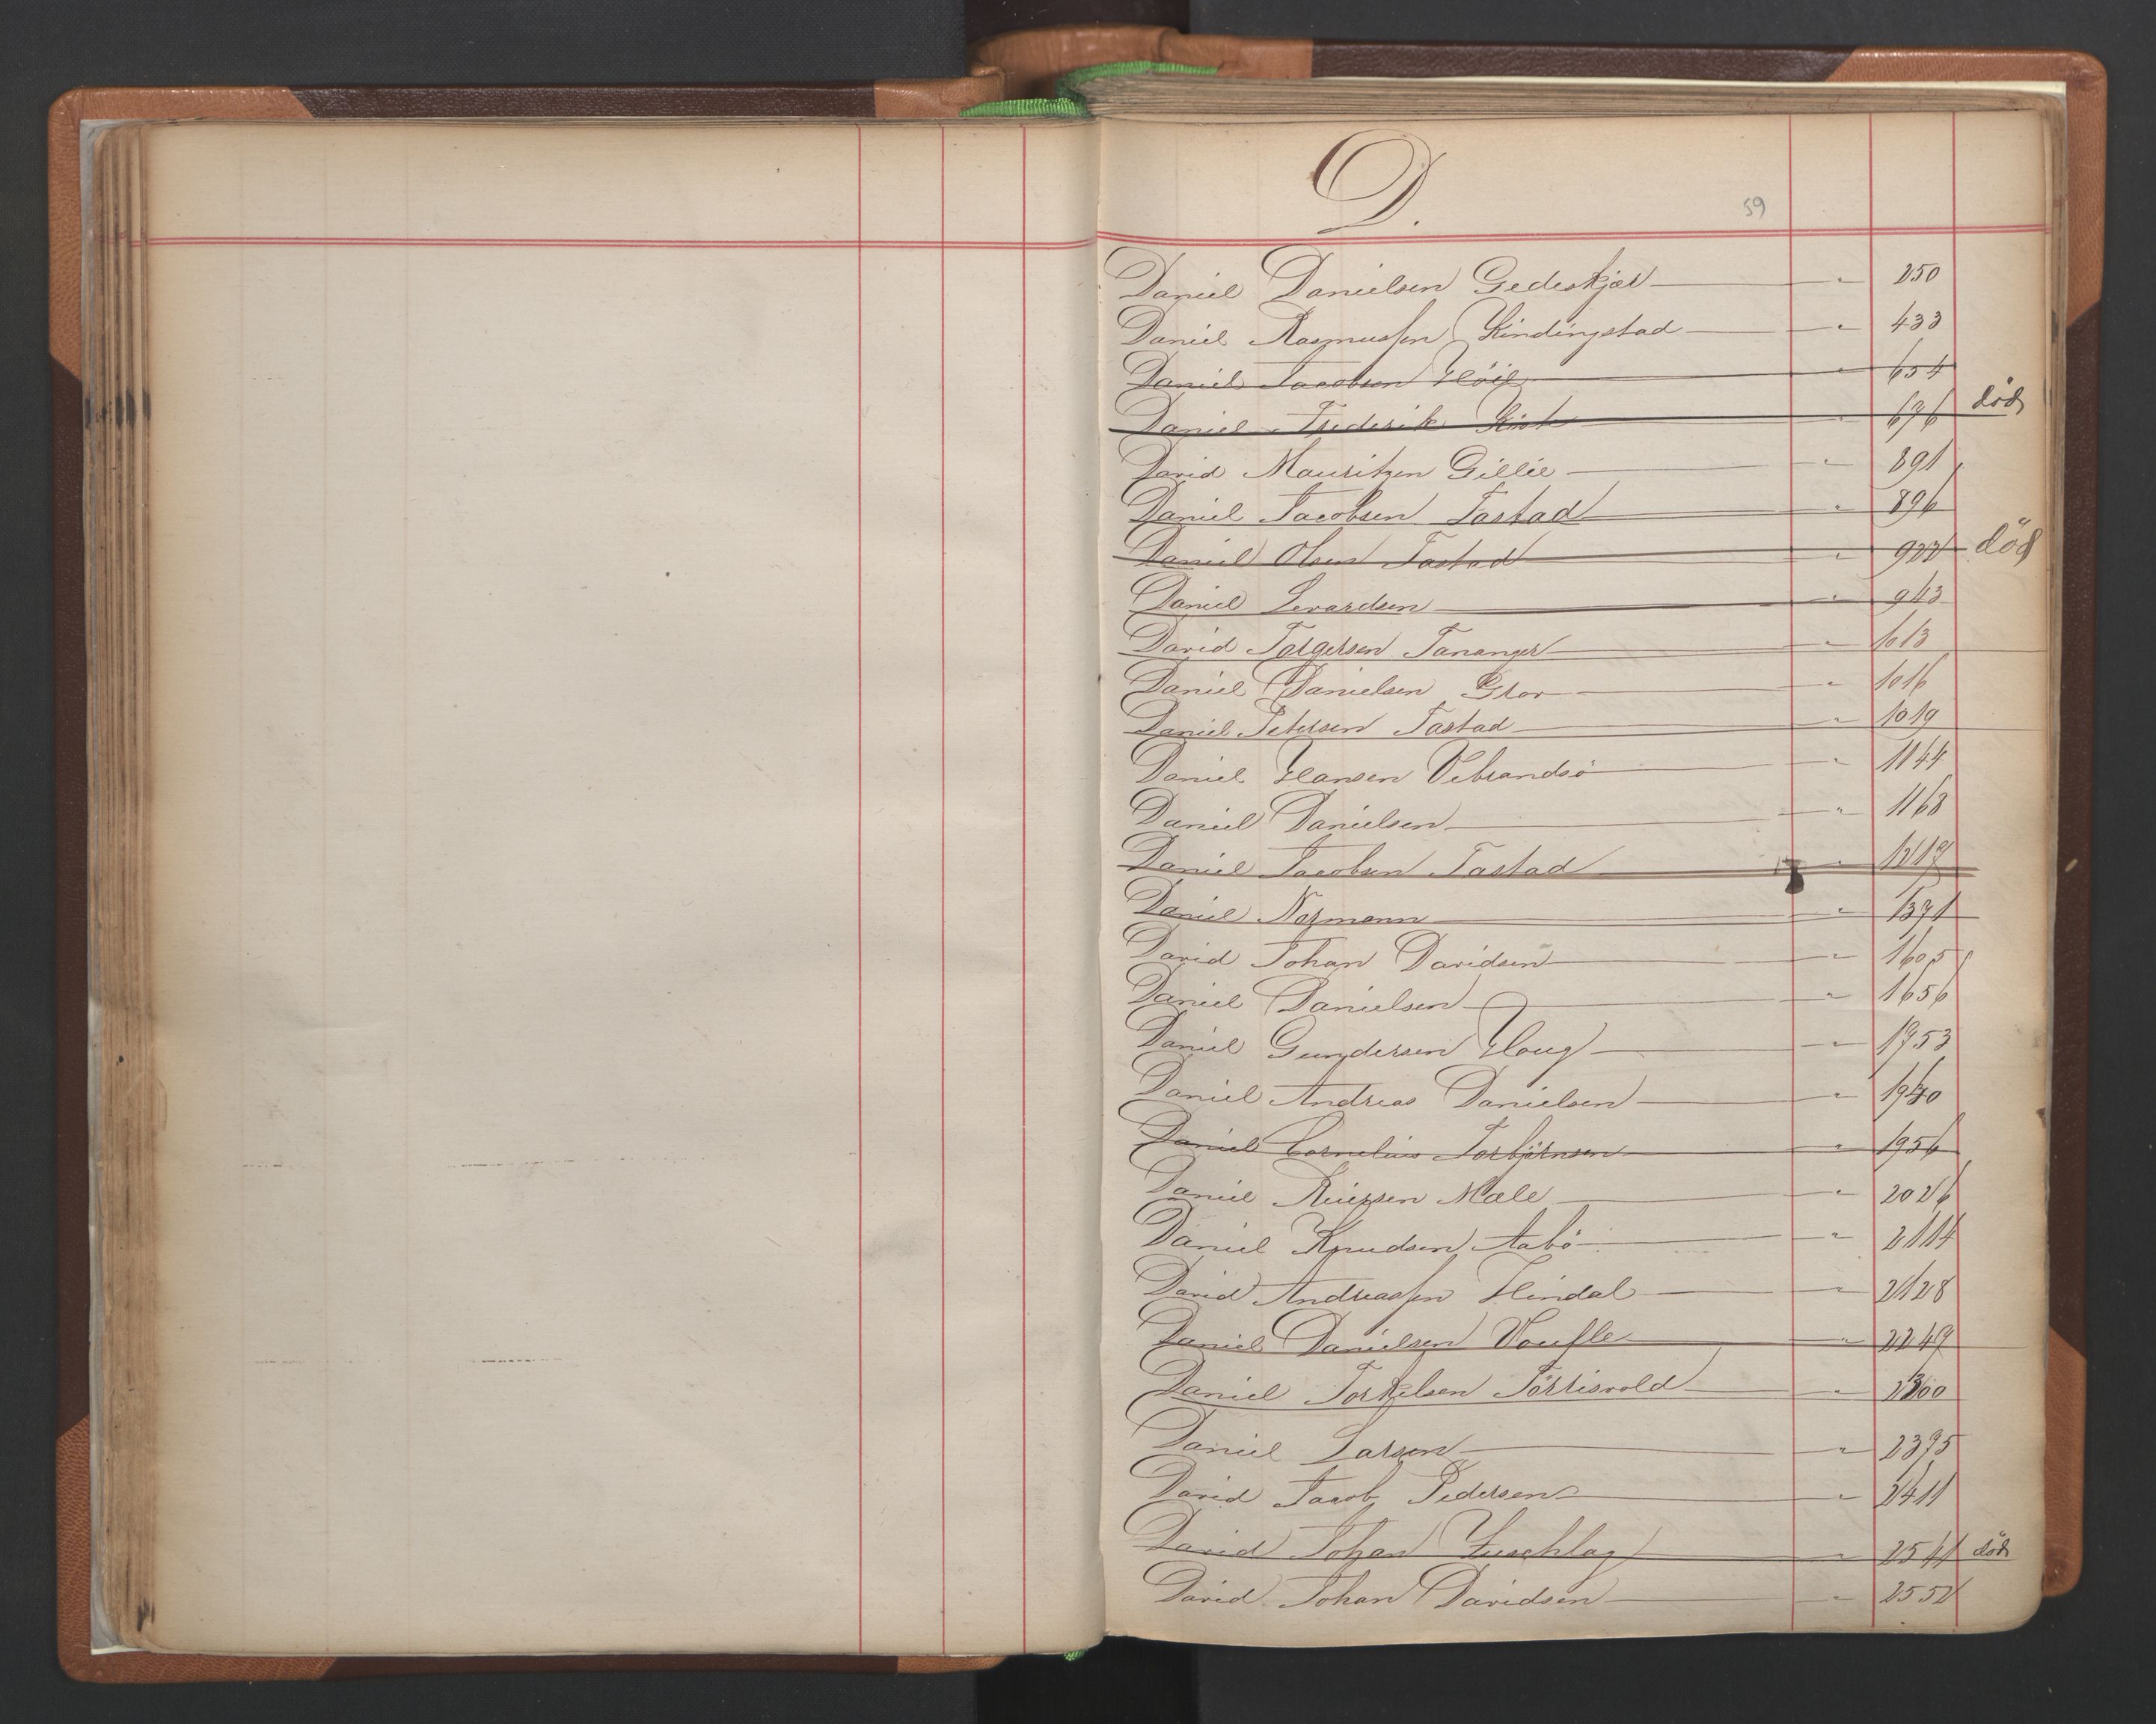 D.
59
Daniel Danielsen Gedeskjær " 250
Daniel Rasmussen Kindingstad " 433
Daniel Jacobsen Höie " 654
Daniel Frederik " 676 död
David Mauritzen Gillie " 891
Daniel Jacobsen Tastad " 896
Daniel Olsen Tastad " 922 död
Daniel Sevardsen " 943
David Torgersen Tananger " 1013
Daniel Danielsen " 1016
Daniel Petersen Tastad " 1019
Daniel Hansen Vebrandsö " 1144
Daniel Danielsen " 1168
Daniel Jacobsen Tastad " 1217
Daniel Normann " 1371
David Johan Davidsen " 1605
Daniel Danielsen " 1656
Daniel Gundersen Houg " 1753
Daniel Andreas Danielsen " 1940
Daniel Cornelius Torbjörnsen " 1956
Daniel Reiersen Mæle " 2026
Daniel Knudsen Aabö " 2114
David Andreassen Hindal " 2128
Daniel Danielsen " 2247
Daniel Torkelsen Törrisvold " 2300
Daniel Larsen " 2375
David Jacob Pedersen " 2411
David Johan Zuschlag " 2541 död
David Johan Davidsen " 2552